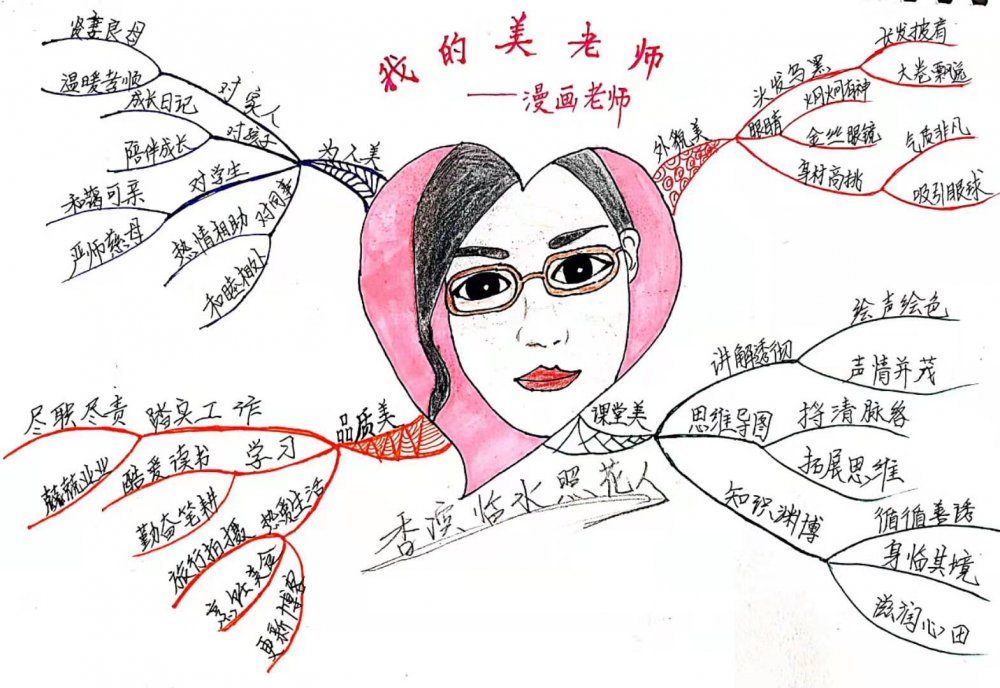 我的美老师
——漫画老师
为人美
对家人
贤妻良母
温暖苦师
对孩子
成长日记
陪伴成长
对学生
和蔼可亲
严师慈母
对同事
热情相助
和睦相处
外貌美
头发乌黑
长发披肩
大卷飘逸
眼睛
炯炯有神
金丝眼镜
身材高挑
气质非凡
吸引眼球
品质美
踏实工作
尽职尽责
兢兢业业
学习
酷爱读书
勤奋笔耕
热爱生活
旅行拍摄
烹饪美食
更新博客
课堂美
讲解透彻
绘声绘色
声情并茂
思维导图
捋清脉络
拓展思维
知识渊博
循循善诱
身临其境
滋润心田
香滨临水照花人